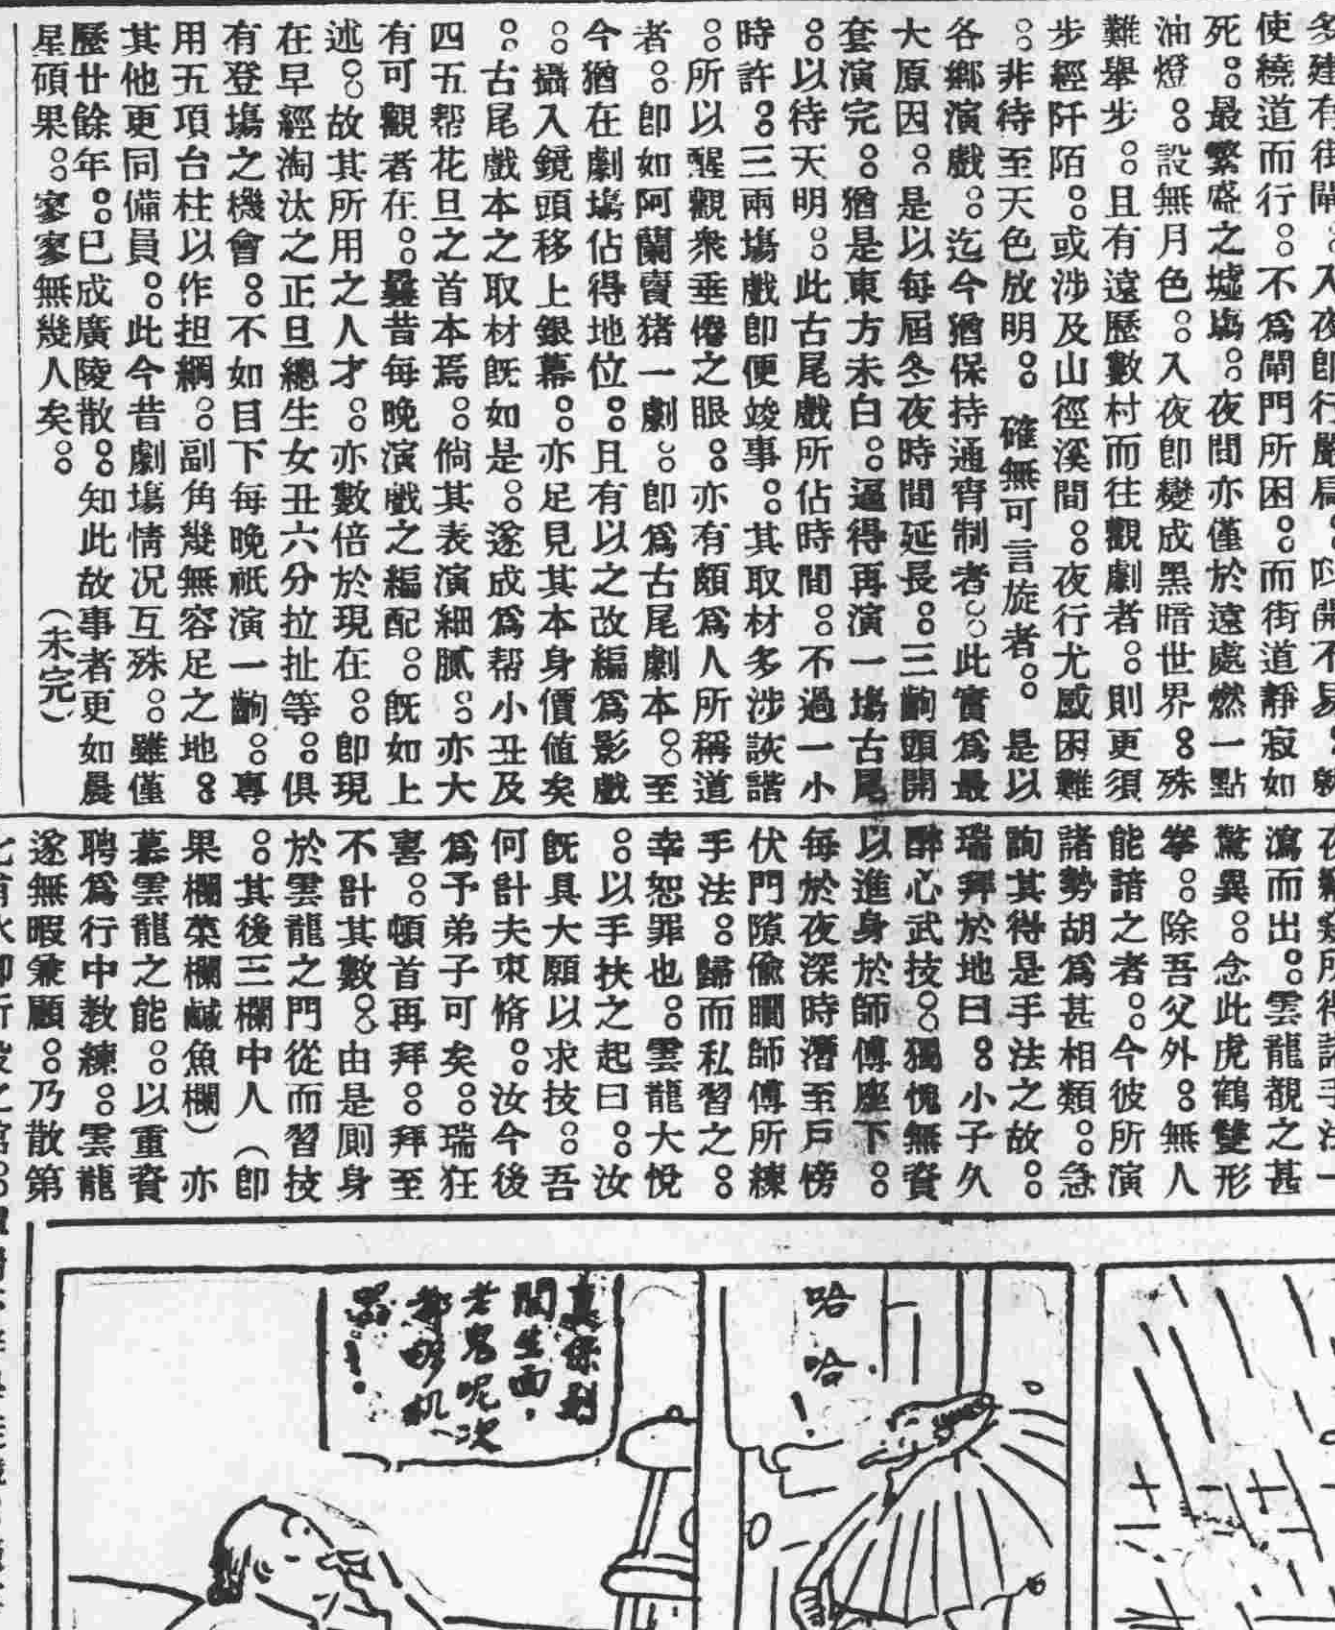 使繞道而行。不爲閘門所困。而街道靜寂如
死。最繁盛之墟塲。夜間亦僅於遠處燃一點
油燈。設無月色。入夜卽變成黑暗世界。殊
難舉步。且有遠歷數村而往觀劇者。則更須
步經阡陌。或涉及山徑溪間。夜行尤感困難
。非待至天色放明。確無可言旋者。是以
各鄉演戲。迄今猶保持通宵制者。此實爲最
大原因。是以每屆冬夜時間延長。三齣頭開
套演完。猶是東方未白。逼得再演一塲古尾
。以待天明。此古尾戲所佔時間。不過一小
時許。三兩塲戲卽便竣事。其取材多涉詼諧
。所以醒觀衆垂倦之眼。亦有頗爲人所稱道
者。卽如阿蘭賣猪一劇。卽爲古尾劇本。至
今猶在劇塲佔得地位。且有以之改編爲影戲
。攝入鏡頭移上銀幕。亦足見其本身價値矣
。古尾戲本之取材旣如是。遂成爲帮小丑及
四五帮花旦之首本焉。倘其表演細膩。亦大
有可觀者在。曩昔每晚演戲之編配。旣如上
述。故其所用之人才。亦數倍於現在。卽現
在早經淘汰之正旦總生女丑六分拉扯等。俱
有登塲之機會。不如目下每晚祇演一齣。專
用五項台柱以作担綱。副角幾無容足之地。
其他更同備員。此今昔劇塲情况互殊。雖僅
歷廿餘年。已成廣陵散。知此故事者更如晨
星碩果。寥寥無幾人矣。（未完）
瀉而出。雲龍覩之甚
驚異。念此虎鶴雙形
拳。除吾父外。無人
能諳之者。今彼所演
諸勢胡爲甚相類。急
詢其得是手法之故。
瑞拜於地曰。小子久
醉心武技。獨愧無資
以進身於師傅座下。
每於夜深時潛至戶傍
伏門隙偷瞯師傅所練
手法。歸而私習之。
幸恕罪也。雲龍大悅
。以手扶之起曰。汝
旣具大願以求技。吾
何計夫束脩。汝今後
爲予弟子可矣。瑞狂
喜。頓首再拜。拜至
不計其數。由是厠身
於雲龍之門從而習技
。其後三欄中人（卽
果欄菜欄鹹魚欄）亦
慕雲龍之能。以重資
聘爲行中敎練。雲龍
遂無暇兼顧。乃散第
哈哈！
真係別
開生面，
老鬼呢次
都幾机